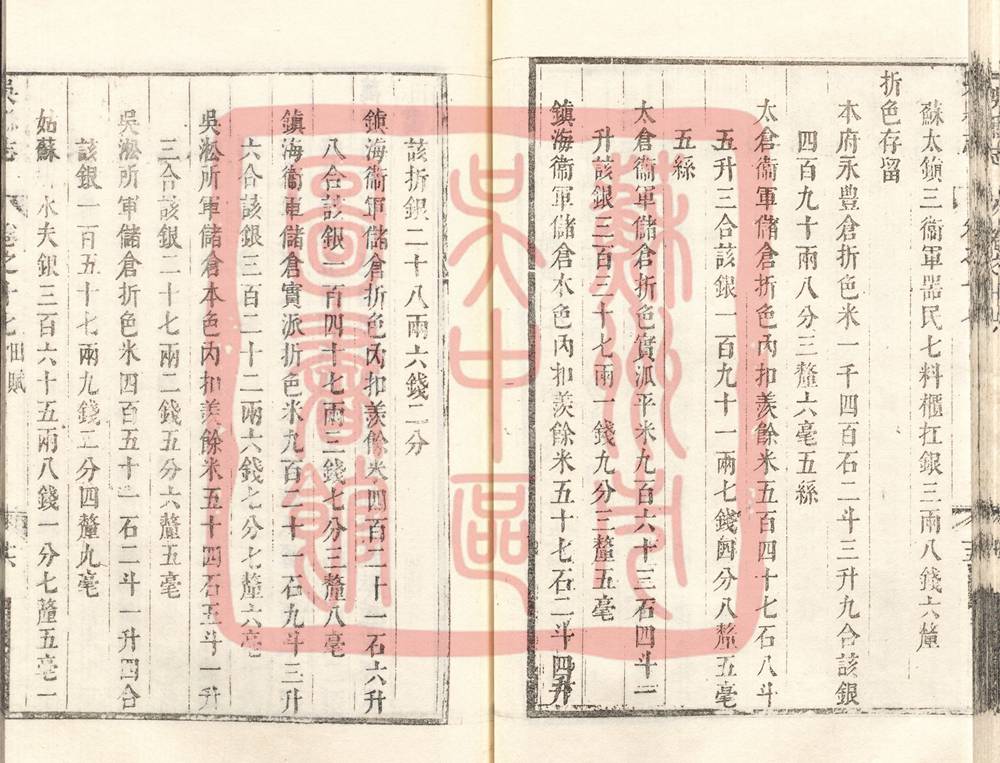 蘇太鎮三衞軍器民七料櫃扛銀三兩八錢六釐
折色存留
本府永豐倉折色米一千四百石二斗三升九合該銀
四百九十兩八分三釐六毫五絲
太倉衞軍儲倉折色內扣羨餘米五百四十七石八斗
五升三合該銀一百九十一兩七錢四分八釐五毫
五絲
太倉衞軍儲倉折色實派平米九百六十三石四斗二
升該銀三百三十七兩一錢九分三釐五毫
鎮海衞軍儲倉本色內扣羨餘米五十七石二斗四升
該折銀二十八兩六錢二分
鎮海衞軍儲倉折色內扣羨餘米四百二十一石六升
八合該銀一百四十七兩三錢七分三釐八毫
鎮海衞軍儲倉實派折色米九百二十一石九斗三升
六合該銀三百二十二兩六錢七分七釐六毫
吳淞所軍儲倉本色內扣羨餘米五十四石五斗一升
三合該銀二十七兩二錢五分六釐五毫
吳淞所軍儲倉折色米四百五十一石二斗一升四合
該銀一百五十七兩九錢二分四釐九毫
姑蘇水夫銀三百六十五兩八錢一分七釐五毫一
志 卷之十七 田賦 六
蘇州市
吳中區
圖書館